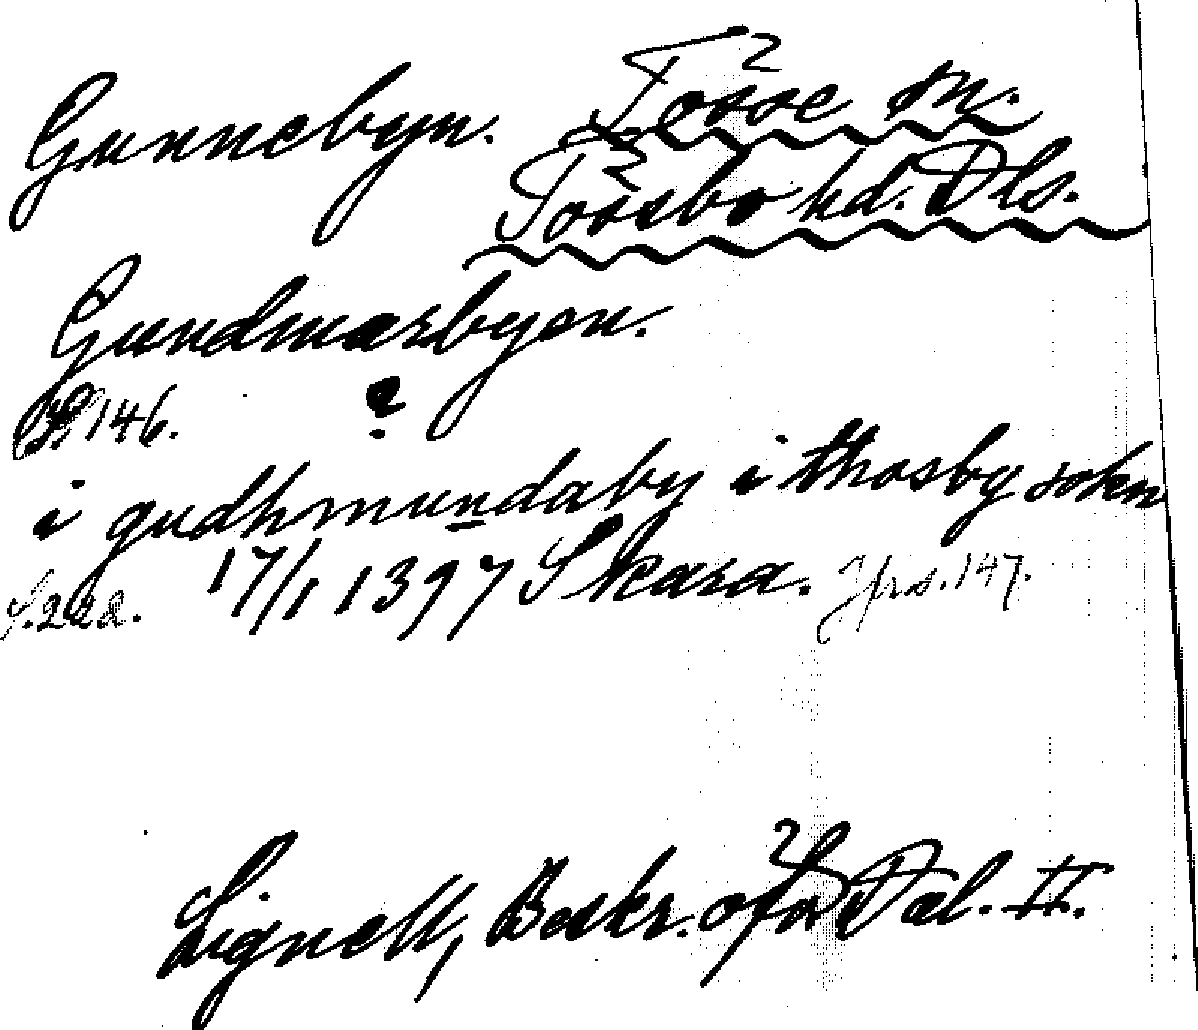 Gunnebyn. Tösse sn.
Tössbo hd. Dls.
Gundmarbyen.
S. 146. ?
i gudhmundaby i thosby sokn
S. 222. 17/1 1397 Skara. Jfr s. 147.
Lignell, Beskr. öfver Dal. II.